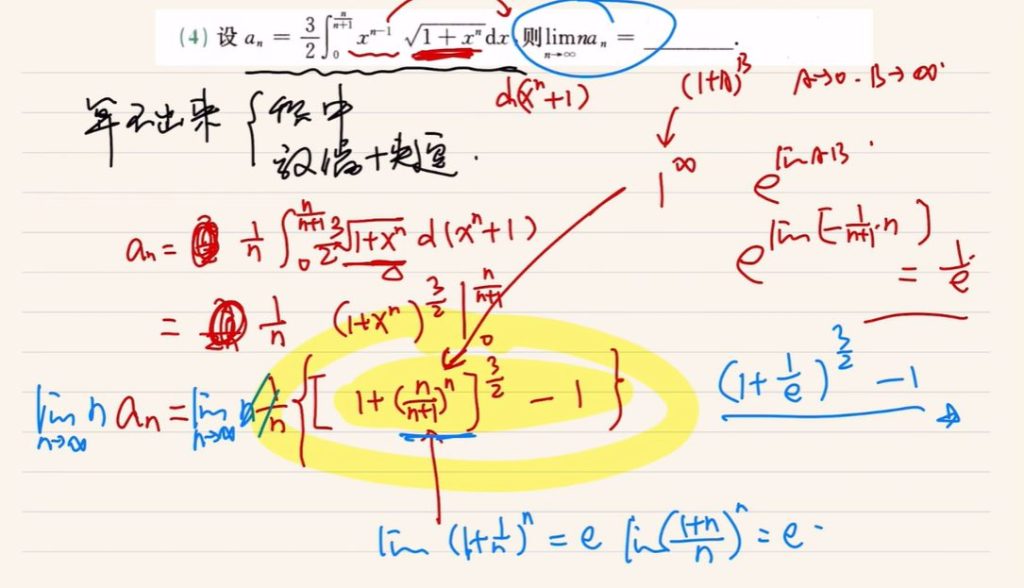 (4) 设 aₙ = 3/2 ∫₀^{n/(n+1)} xⁿ⁻¹ √(1+xⁿ) dx, 则 lim_{n→∞} naₙ = ______.
d(xⁿ+1)
(1+A)^B A→0 · B→∞
算不出来 { 积中
放缩+夹逼.
1^∞ e^{lim AB}
aₙ = 1/n ∫₀^{n/(n+1)} 3/2 √(1+xⁿ) d(xⁿ+1)
e^{lim[-1/(n+1)·n]} = 1/e
= 1/n (1+xⁿ)^{3/2} |₀^{n/(n+1)}
lim_{n→∞} n aₙ = lim_{n→∞} n 1/n {[1+(n/(n+1))ⁿ]^{3/2} - 1} (1+1/e)^{3/2} - 1
lim (1+1/n)ⁿ = e lim((1+n)/n)ⁿ = e